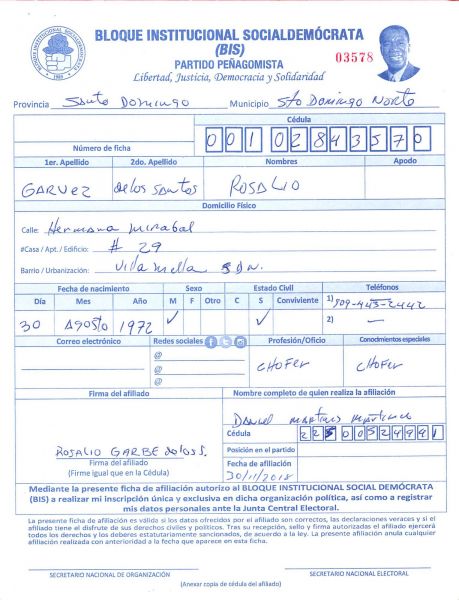 BLOQUE INSTITUCIONAL SOCIALDEMÓCRATA
(BIS)
PARTIDO PEÑAGOMISTA
Libertad, Justicia, Democracia y Solidaridad
03578
Provincia Santo Domingo Municipio Sto Domingo Norte
Cédula
Número de ficha 001 0284357 0
1er. Apellido 2do. Apellido Nombres Apodo
GARVEZ de los Santos ROSALIO
Domicilio Físico
Calle: Hermana mirabal
#Casa / Apt. / Edificio: # 29
Barrio / Urbanización: Villa mella SDN.
Fecha de nacimiento Sexo Estado Civil Teléfonos
Día Mes Año M F Otro C S Conviviente 1) 809-445-2442
30 Agosto 1972 ✓ ✓ 2) —
Correo electrónico Redes sociales Profesión/Oficio Conocimientos especiales
@
@ CHOFER CHOFER
@
Firma del afiliado Nombre completo de quien realiza la afiliación
Daniel martinez martinez
Cédula 225 0052494 1
ROSALIO GARBE de los S. Posición en el partido
Firma del afiliado Fecha de afiliación
(Firme igual que en la Cédula) 30/11/2018
Mediante la presente ficha de afiliación autorizo al BLOQUE INSTITUCIONAL SOCIAL DEMÓCRATA
(BIS) a realizar mi inscripción única y exclusiva en dicha organización política, así como a registrar
mis datos personales ante la Junta Central Electoral.
La presente ficha de afiliación es válida si los datos ofrecidos por el afiliado son correctos, las declaraciones veraces y si el afiliado
tiene el disfrute de sus derechos civiles y politicos. Tras su recepción, sello y firma autorizadas el afiliado ejercerá
todos los derechos y los deberes estatutariamente sancionados, de acuerdo a la ley. La presente afiliación anula cualquier
afiliación realizada con anterioridad a la fecha que aparece en esta ficha.
SECRETARIO NACIONAL DE ORGANIZACIÓN SECRETARIO NACIONAL ELECTORAL
(Anexar copia de cédula del afiliado)